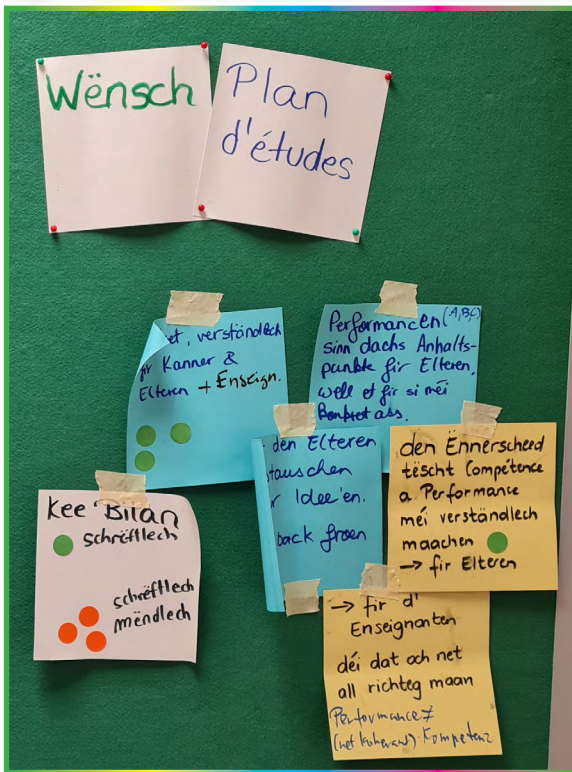 Wënsch
Plan
d'études
et, verständlech
fir Kanner &
Elteren + Enseign.
Performancen (A,B,C)
sinn dachs Anhalts-
punkte fir Elteren,
well et fir si méi
konkret ass.
den Elteren
tauschen
Idee'en.
back froen
den Ënnerscheed
tëscht Compétence
a Performance
méi verständlech
maachen
→ fir Elteren
Kee Bilan
schrëftlech
schrëftlech
mëndlech
→ fir d'
Enseignanten
déi dat och net
all richteg maan
Performance ≠
(net kohärent) Kompetenz